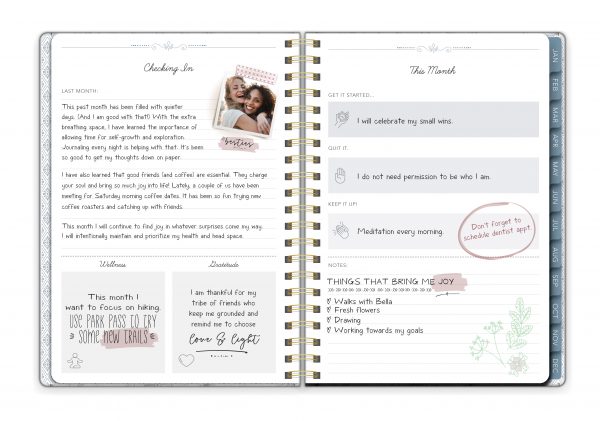 Checking In
LAST MONTH:
This past month has been filled with quieter
days. (And I am good with that!) With the extra
breathing space, I have learned the importance of
allowing time for self-growth and exploration.
Journaling every night is helping with that. It's been
so good to get my thoughts down on paper.
besties
I have also learned that good friends (and coffee) are essential. They charge
your soul and bring so much joy into life! Lately, a couple of us have been
meeting for Saturday morning coffee dates. It has been so fun trying new
coffee roasters and catching up with friends.
This month I will continue to find joy in whatever surprises come my way.
I will intentionally maintain and prioritize my health and head space.
Wellness
This month I
want to focus on hiking.
USE PARK PASS TO TRY
SOME NEW TRAILS
Gratitude
I am thankful for my
tribe of friends who
keep me grounded and
remind me to choose
love & light
This Month
GET IT STARTED...
I will celebrate my small wins.
QUIT IT.
I do not need permission to be who I am.
KEEP IT UP!
Meditation every morning.
Don't forget to
schedule dentist appt.
NOTES:
THINGS THAT BRING ME JOY
Walks with Bella
Fresh flowers
Drawing
Working towards my goals
JAN
FEB
MAR
APR
MAY
JUN
JUL
AUG
SEP
OCT
NOV
DEC